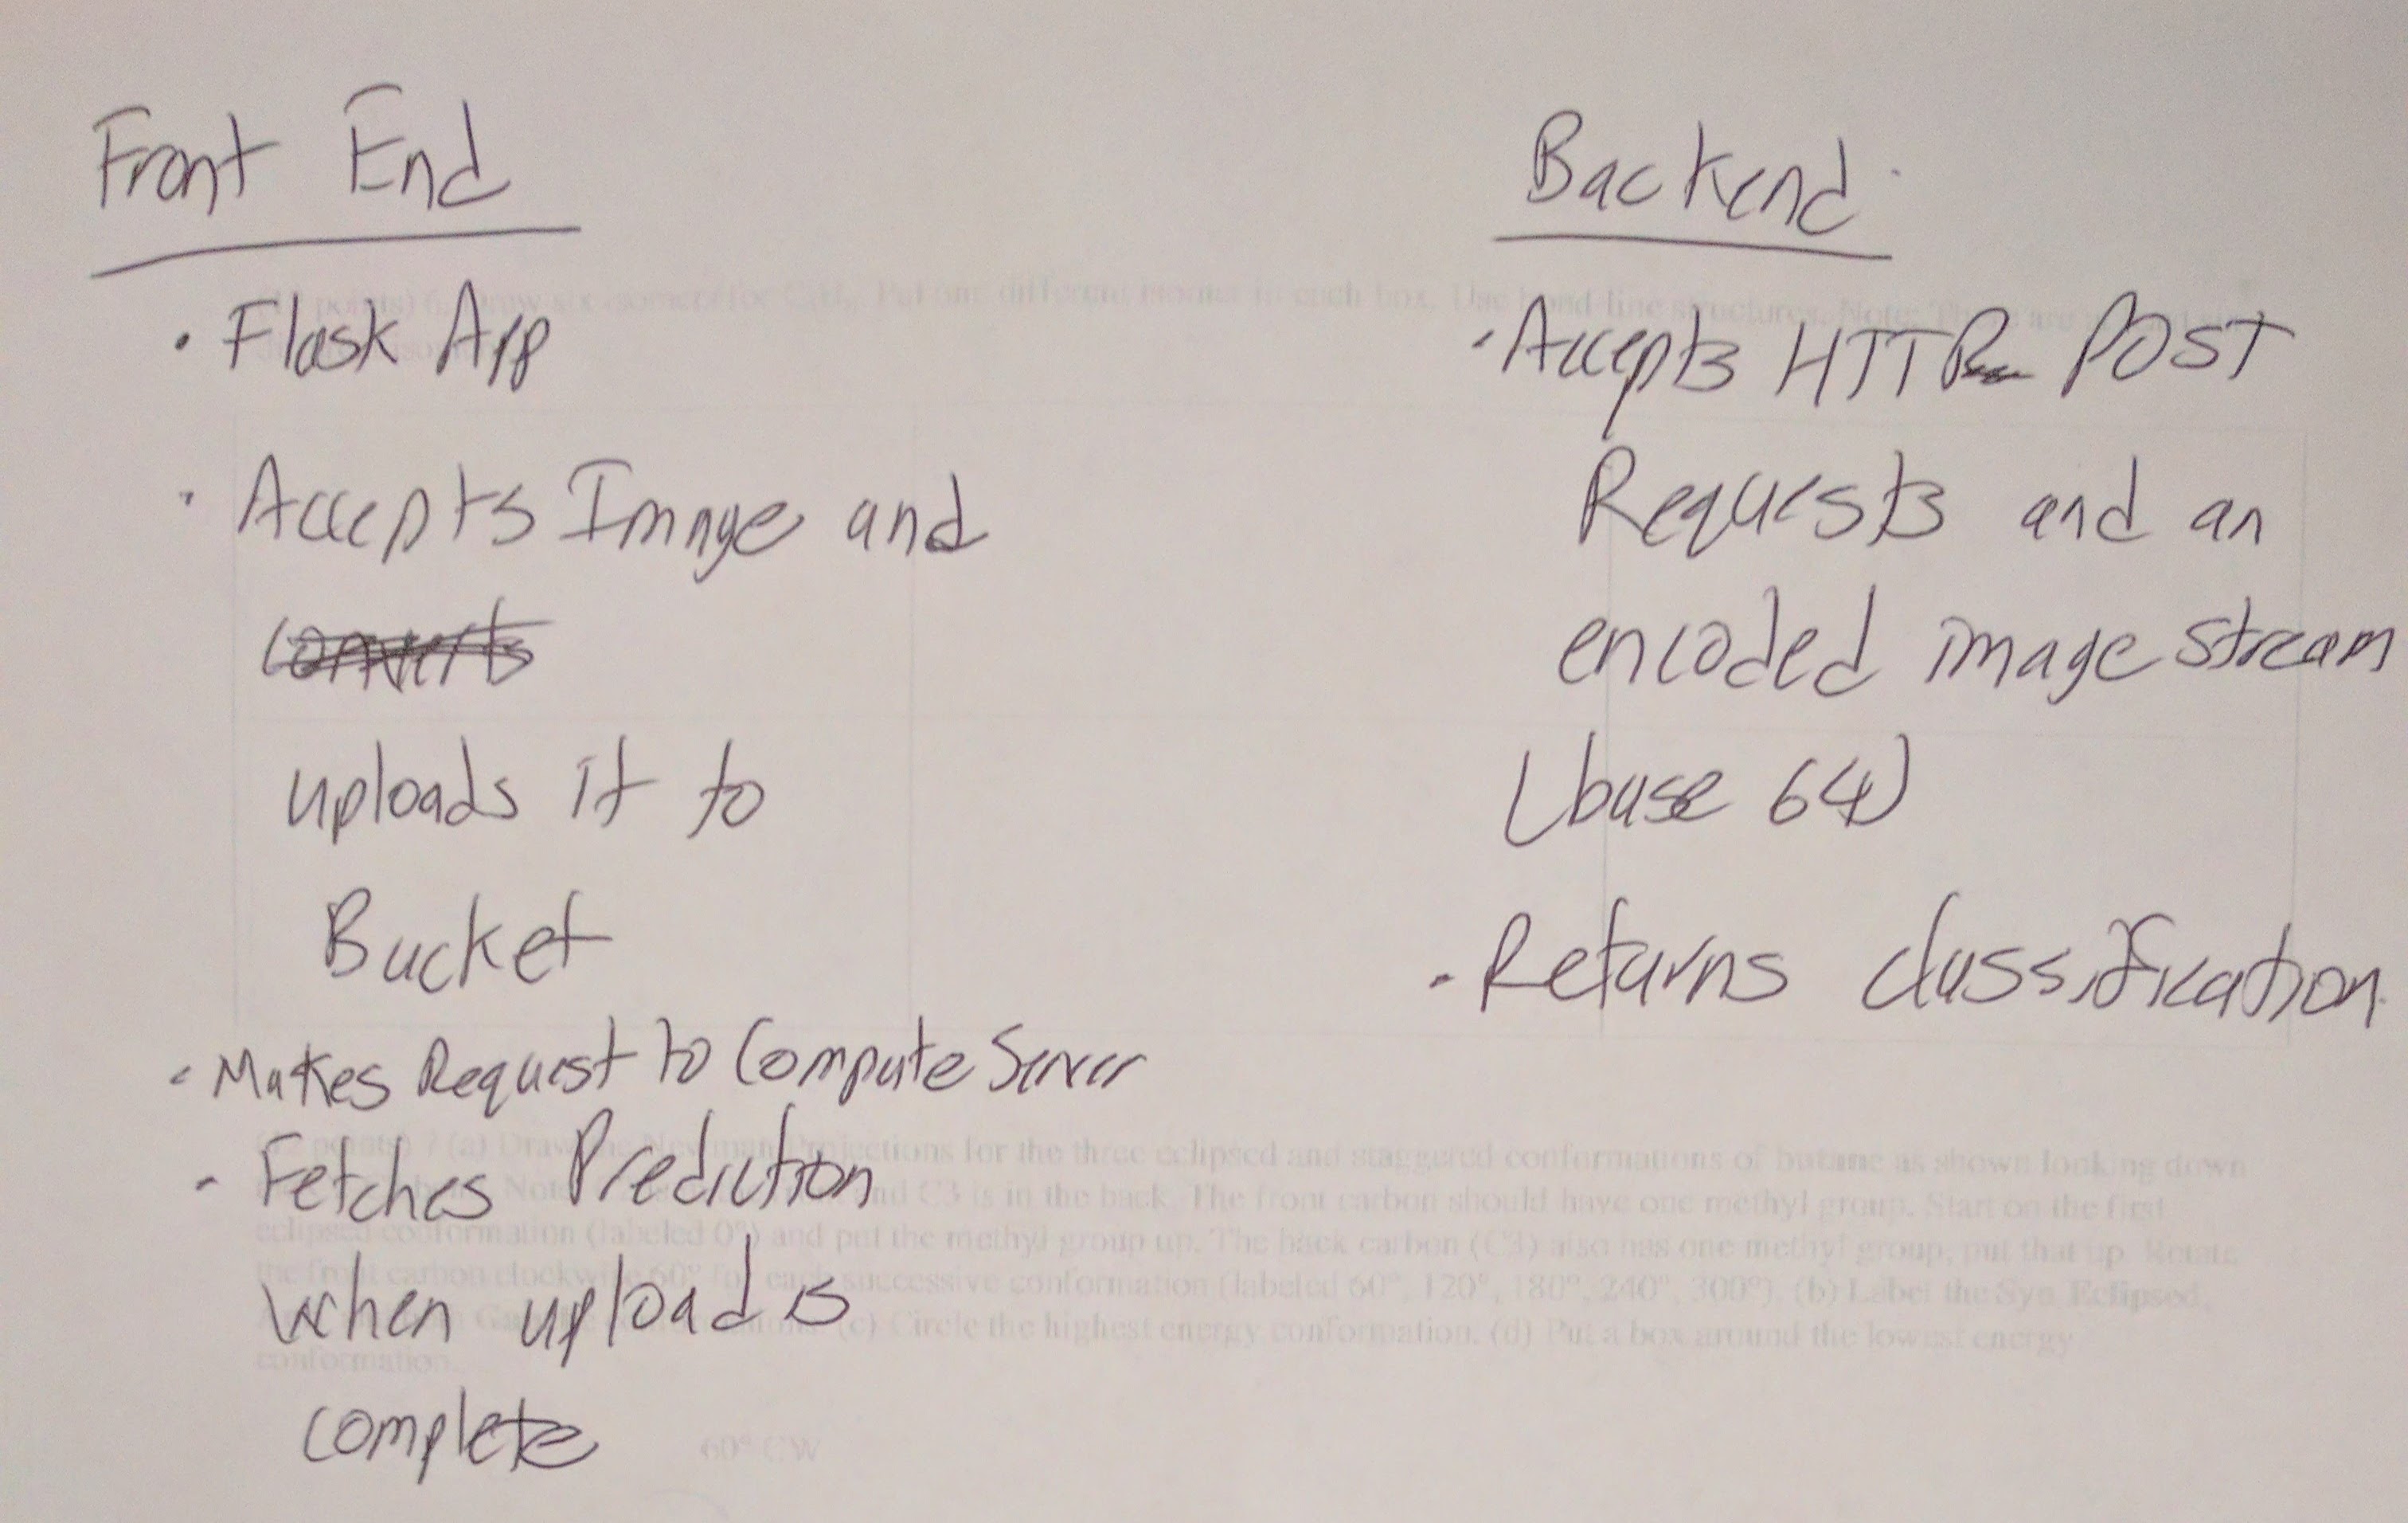 Front End
• Flask App
• Accepts Image and
converts
uploads it to
Bucket
• Makes Request to Compute Server
• Fetches Prediction
when upload is
complete
Backend
• Accepts HTTP POST
Requests and an
encoded image stream
(base 64)
• Returns classification
points) 6. Draw six isomers for Put one different isomer in each box. Use bond-line structures. Note: There are
points) 7 (a) Draw the Newman Projections for the three eclipsed and staggered conformations of butane as shown looking down
and C3 is in the back. The front carbon should have one methyl group. Start on the first
eclipsed conformation (labeled 0°) and put the methyl group up. The back carbon (C3) also has one methyl group, put that up. Rotate
the front carbon clockwise 60° for each successive conformation (labeled 60°, 120°, 180°, 240°, 300°). (b) Label the Syn Eclipsed,
(c) Circle the highest energy conformation. (d) Put a box around the lowest energy
conformation.
60° CW